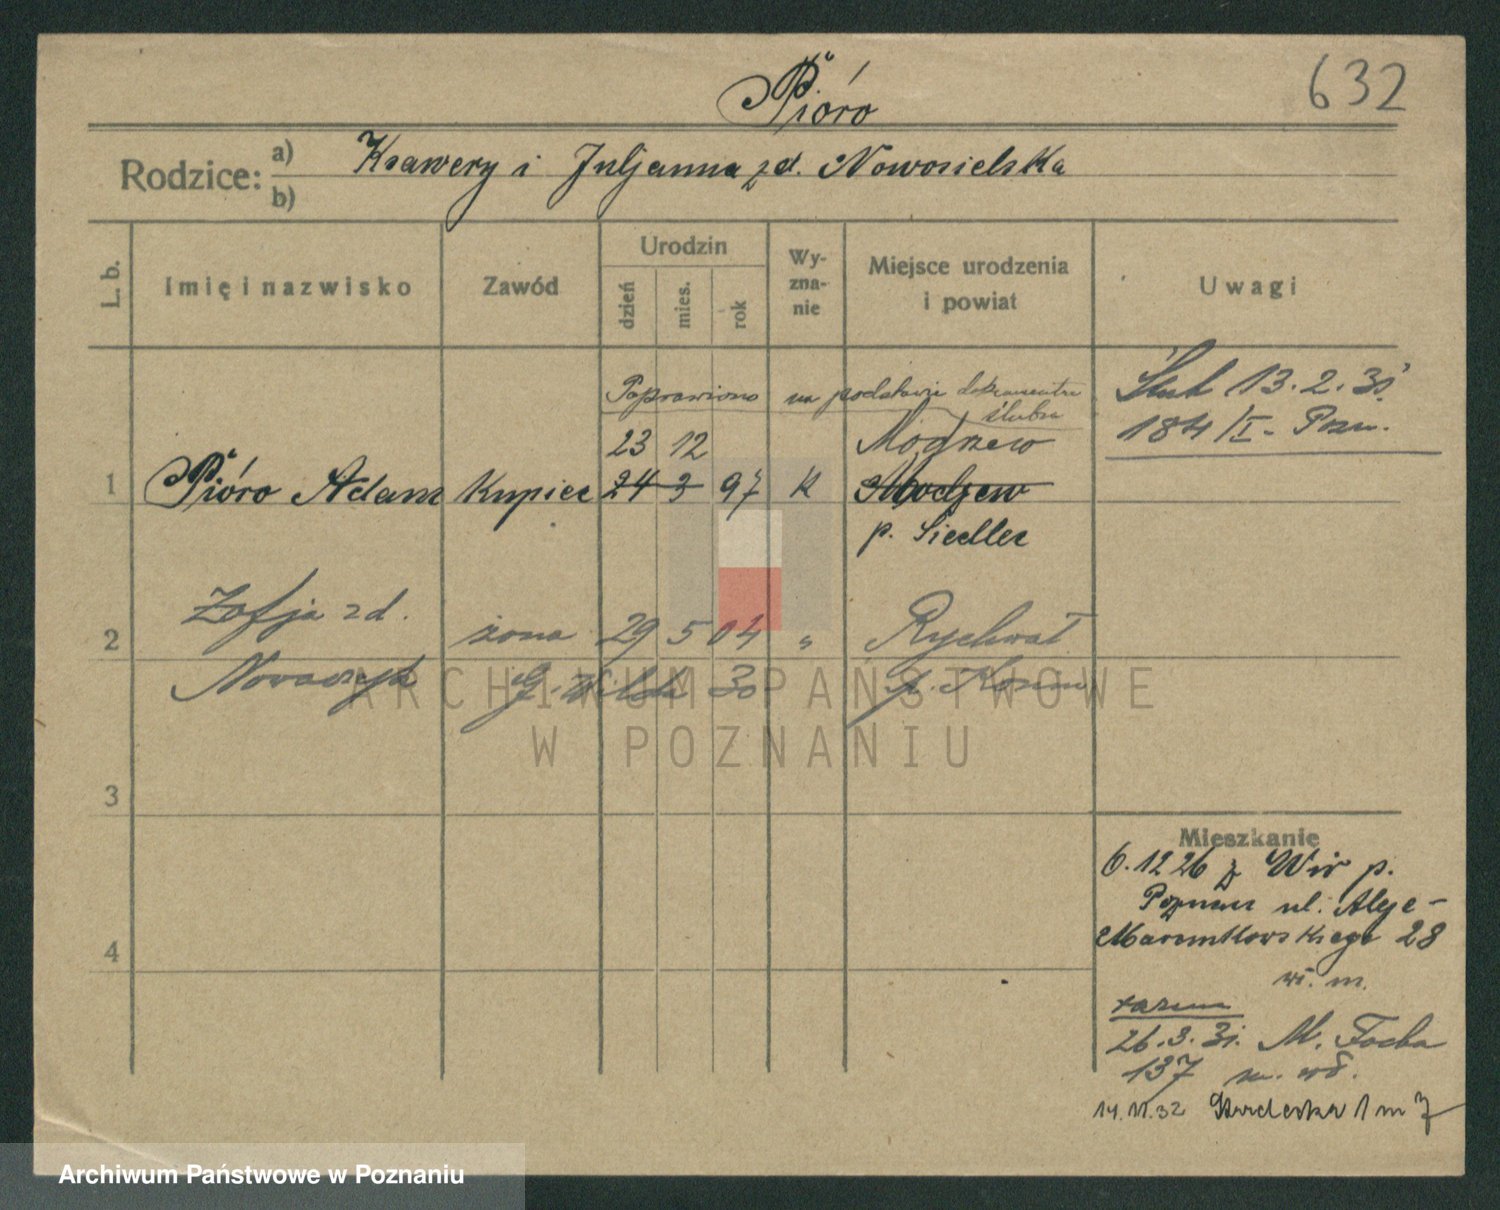 632
Pióro
Rodzice: a) Ksawery i Juljanna zd. Nowosielska
b)
L. b. Imię i nazwisko Zawód Urodzin dzień mies. rok Wy-zna-nie Miejsce urodzenia i powiat Uwagi
Poprawiono na podstawie dokumentu
ślubu
Ślub 13.2.31
184/I - Pozn.
23 12 Modrzew
1 Pióro Adam Kupiec 24 3 97 K Modzew
p. Siedlec
2 Zofja zd. żona 29 5 04 " Rychwał
Nowaczyk G. Wilda 30 p. Konin
3
4
Mieszkanie
6.12 26 z Wir p.
Poznan ul. Aleje -
Marcinkowskiego 28
w. m.
razem
26.3.31. M. Focha
137 m.
14.11.32 1 m 7
ARCHIWUM PAŃSTWOWE
W POZNANIU
Archiwum Państwowe w Poznaniu